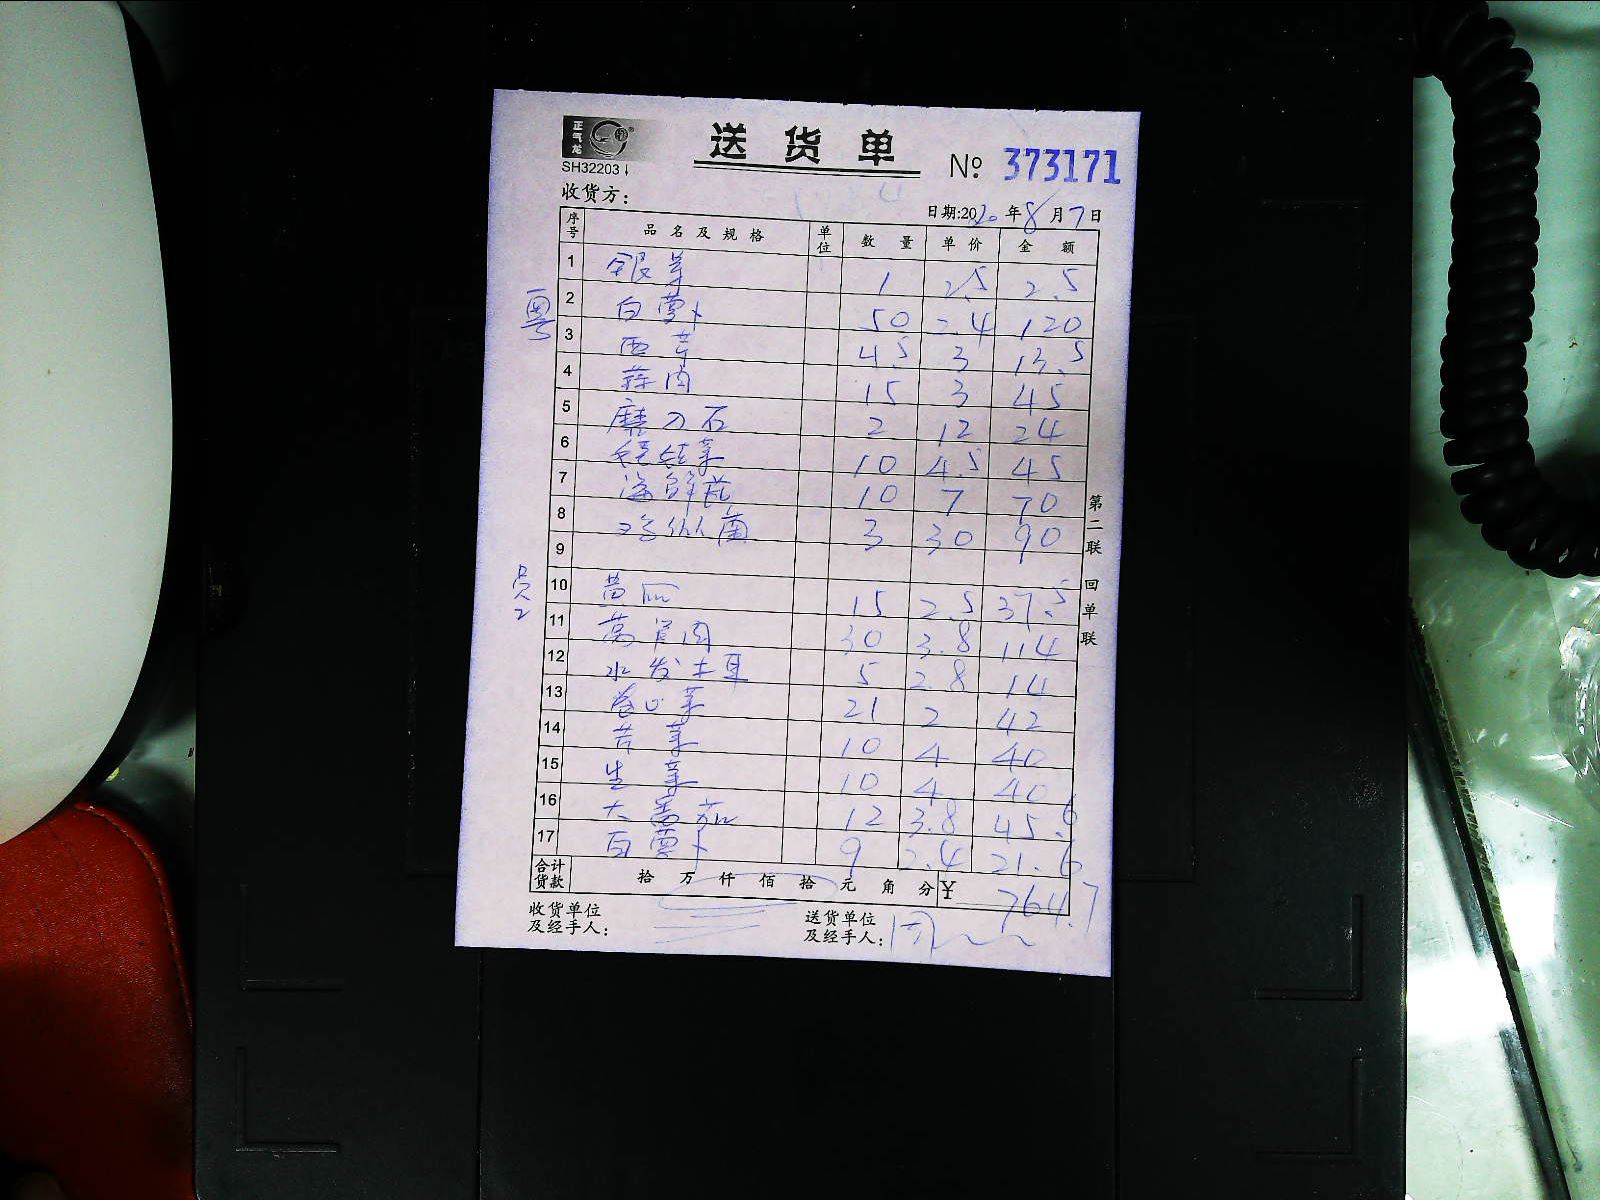 正气龙
送货单
SH32203
№ 373171
收货方：
日期:2020年8月7日
序号 品名及规格 单位 数量 单价 金额
粤
1 银芽 1 2.5 2.5
2 白萝卜 50 2.4 120
3 西芹 4.5 3 13.5
4 蒜肉 15 3 45
5 磨刀石 2 12 24
6 娃菜 10 4.5 45
7 海鲜菇 10 7 70
8 鸡枞菌 3 30 90
9
员2
10 15 2.5 37.5
11 莴笋肉 30 3.8 114
12 水发木耳 5 2.8 14
13 卷心菜 21 2 42
14 苦菜 10 4 40
15 生菜 10 4 40
16 大番茄 12 3.8 45.6
17 白萝卜 9 2.4 21.6
合计货款 拾 万 仟 佰 拾 元 角 分 ¥ 764.7
收货单位及经手人：
送货单位及经手人：
第二联 回单联